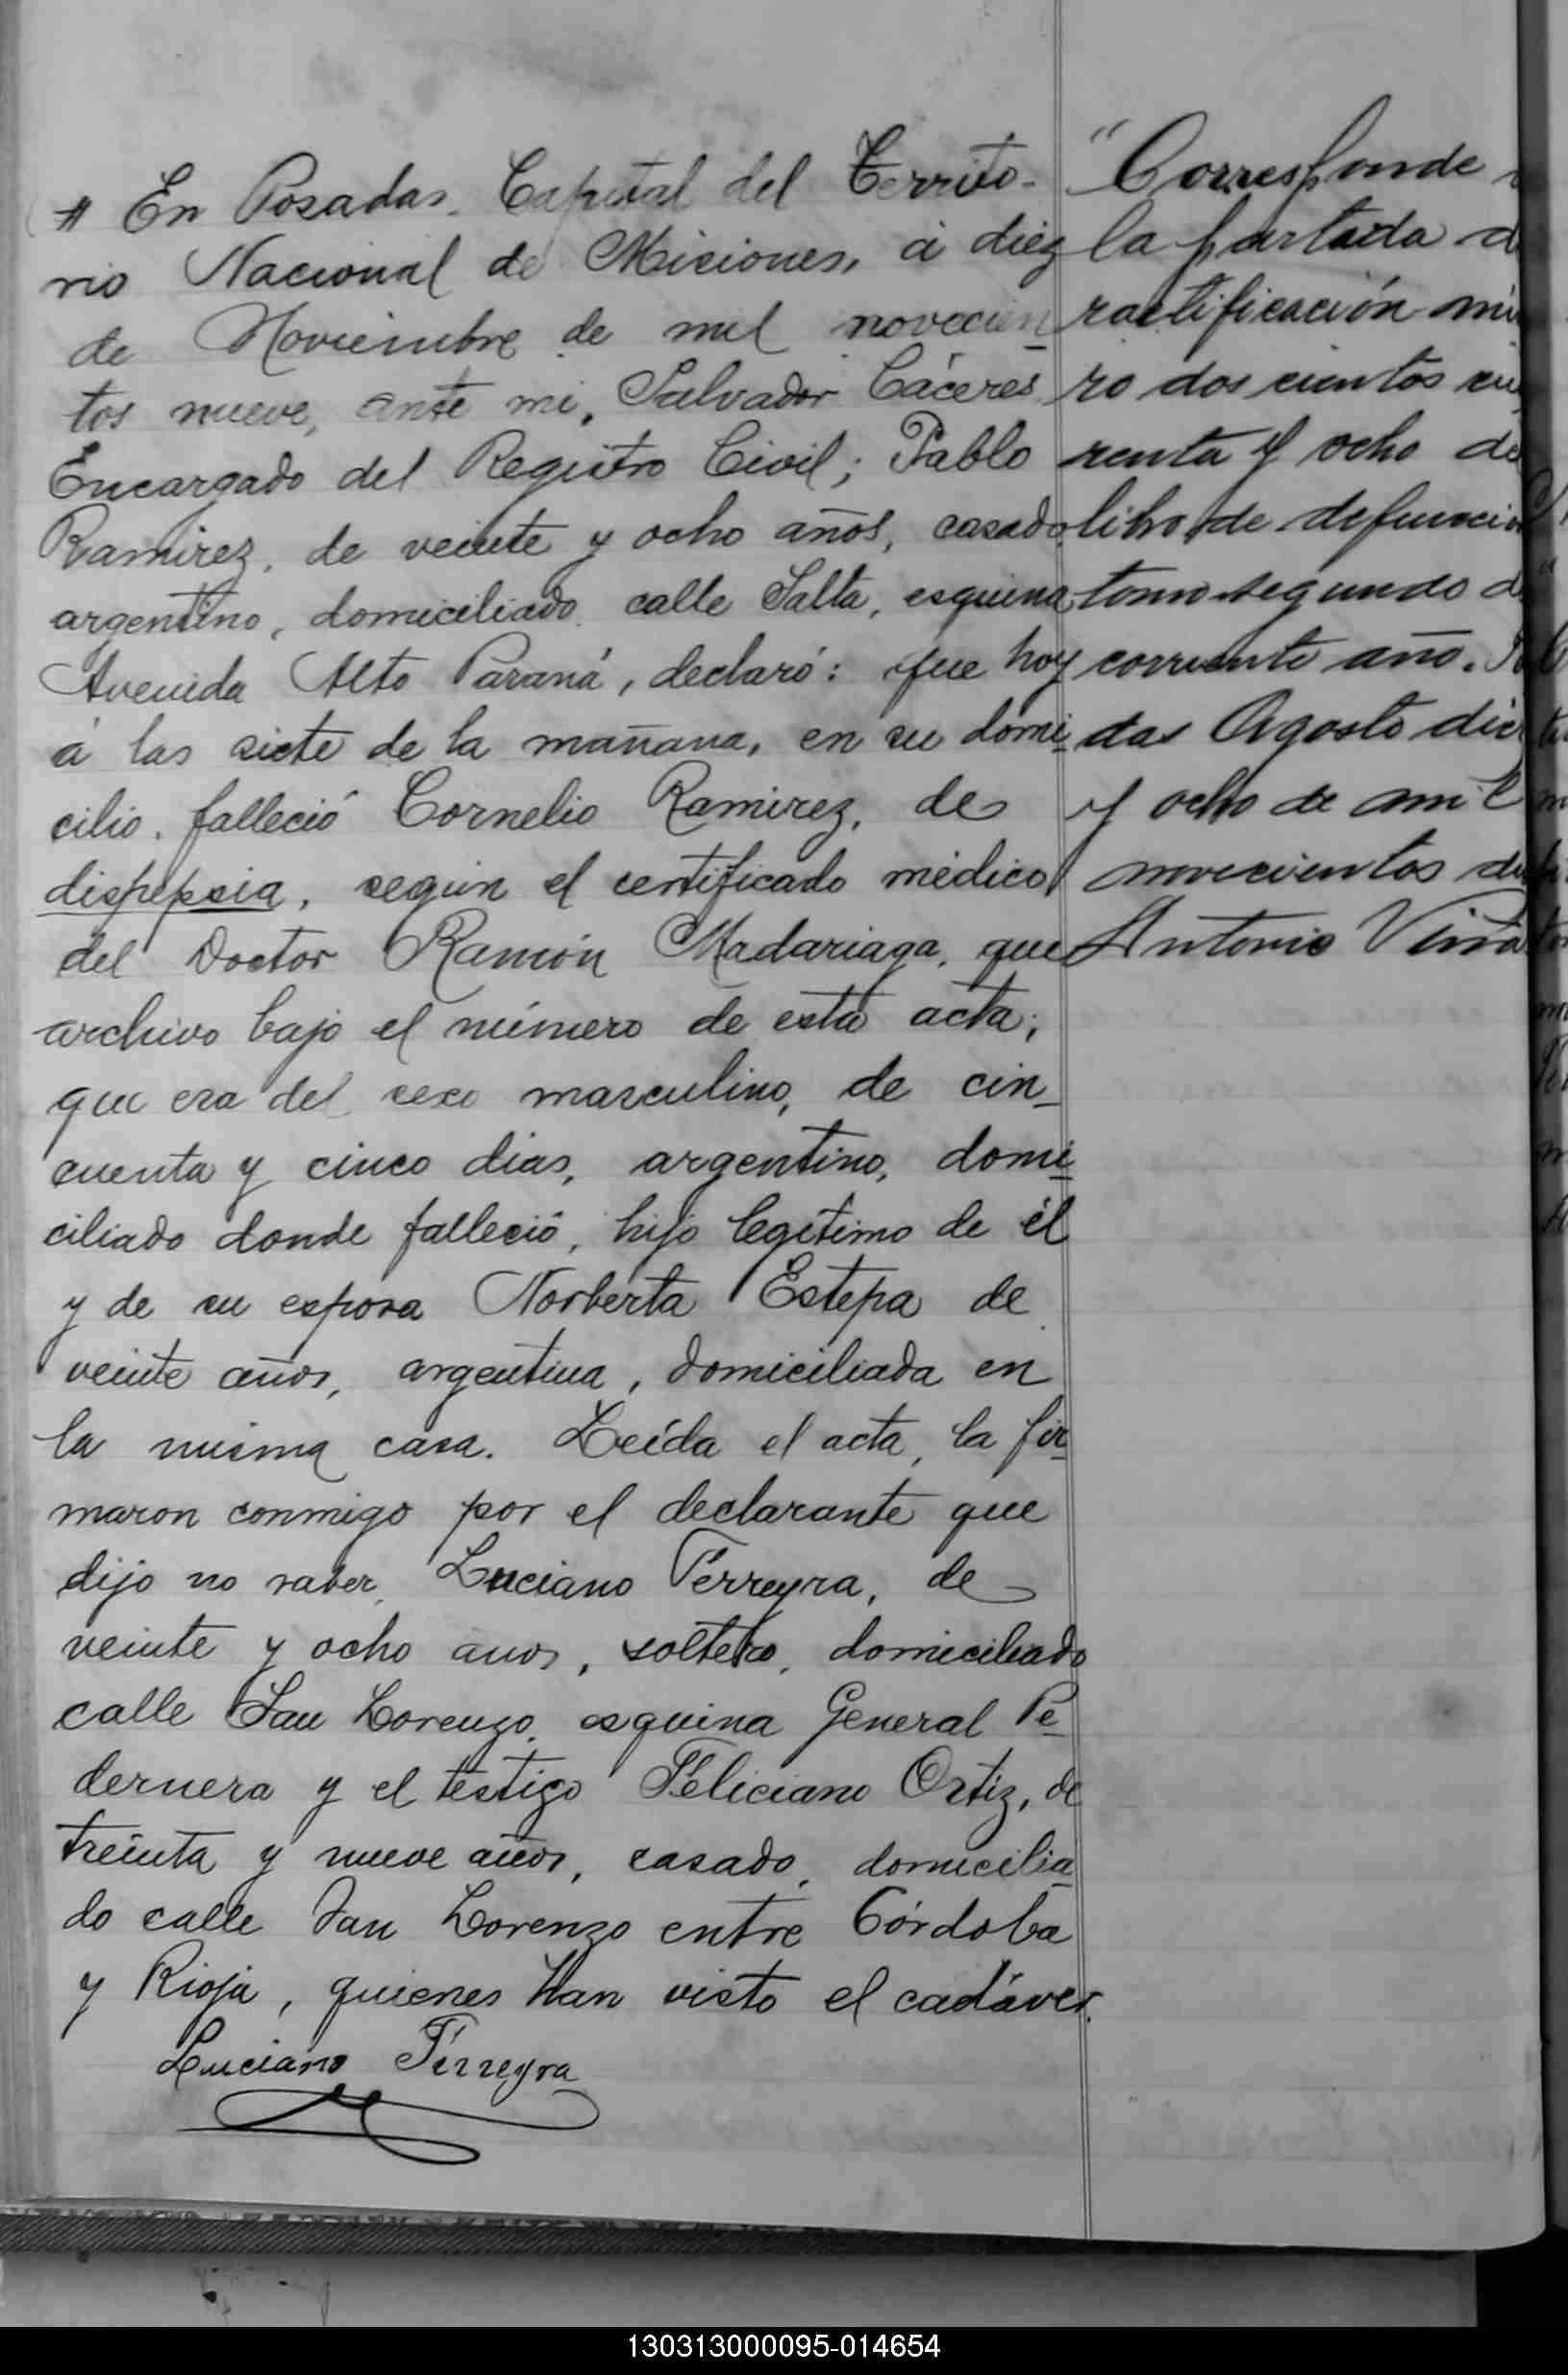 # En Posadas, Capital del Territo-
rio Nacional de Misiones, á diez
de Noviembre de mil novecien
tos nueve, ante mi, Salvador Cáceres
Encargado del Registro Civil; Pablo
Ramirez, de veinte y ocho años, casado
argentino, domiciliado calle Salta, esquina
Avenida Alto Paraná, declaró: que hoy
á las siete de la mañana, en su domi
cilio, falleció Cornelio Ramirez, de
dispepsia, según el certificado médico
del Doctor Ramón Madariaga, que
archivo bajo el número de esta acta;
que era del sexo masculino, de cin_
cuenta y cinco dias, argentino, domi
ciliado donde falleció, hijo legítimo de él
y de su esposa Norberta Estepa de
veinte años, argentina, domiciliada en
la misma casa. Leída el acta, la fir
maron conmigo por el declarante que
dijo no saber, Luciano Ferreyra, de
veinte y ocho años, soltero, domiciliado
calle San Lorenzo, esquina General Pe_
dernera y el testigo Feliciano Ortiz, de
treinta y nueve años, casado, domicilia
do calle San Lorenzo entre Córdoba
y Rioja, quienes han visto el cadáver.
Luciano Ferreyra
"Corresponde
la partida d
ractificación nú
ro dos cientos cu
renta y ocho de
libro de defuncio
tomo segundo d
corriente año.
das Agosto diez
y ocho de mil
novecientos
Antonio
130313000095-014654